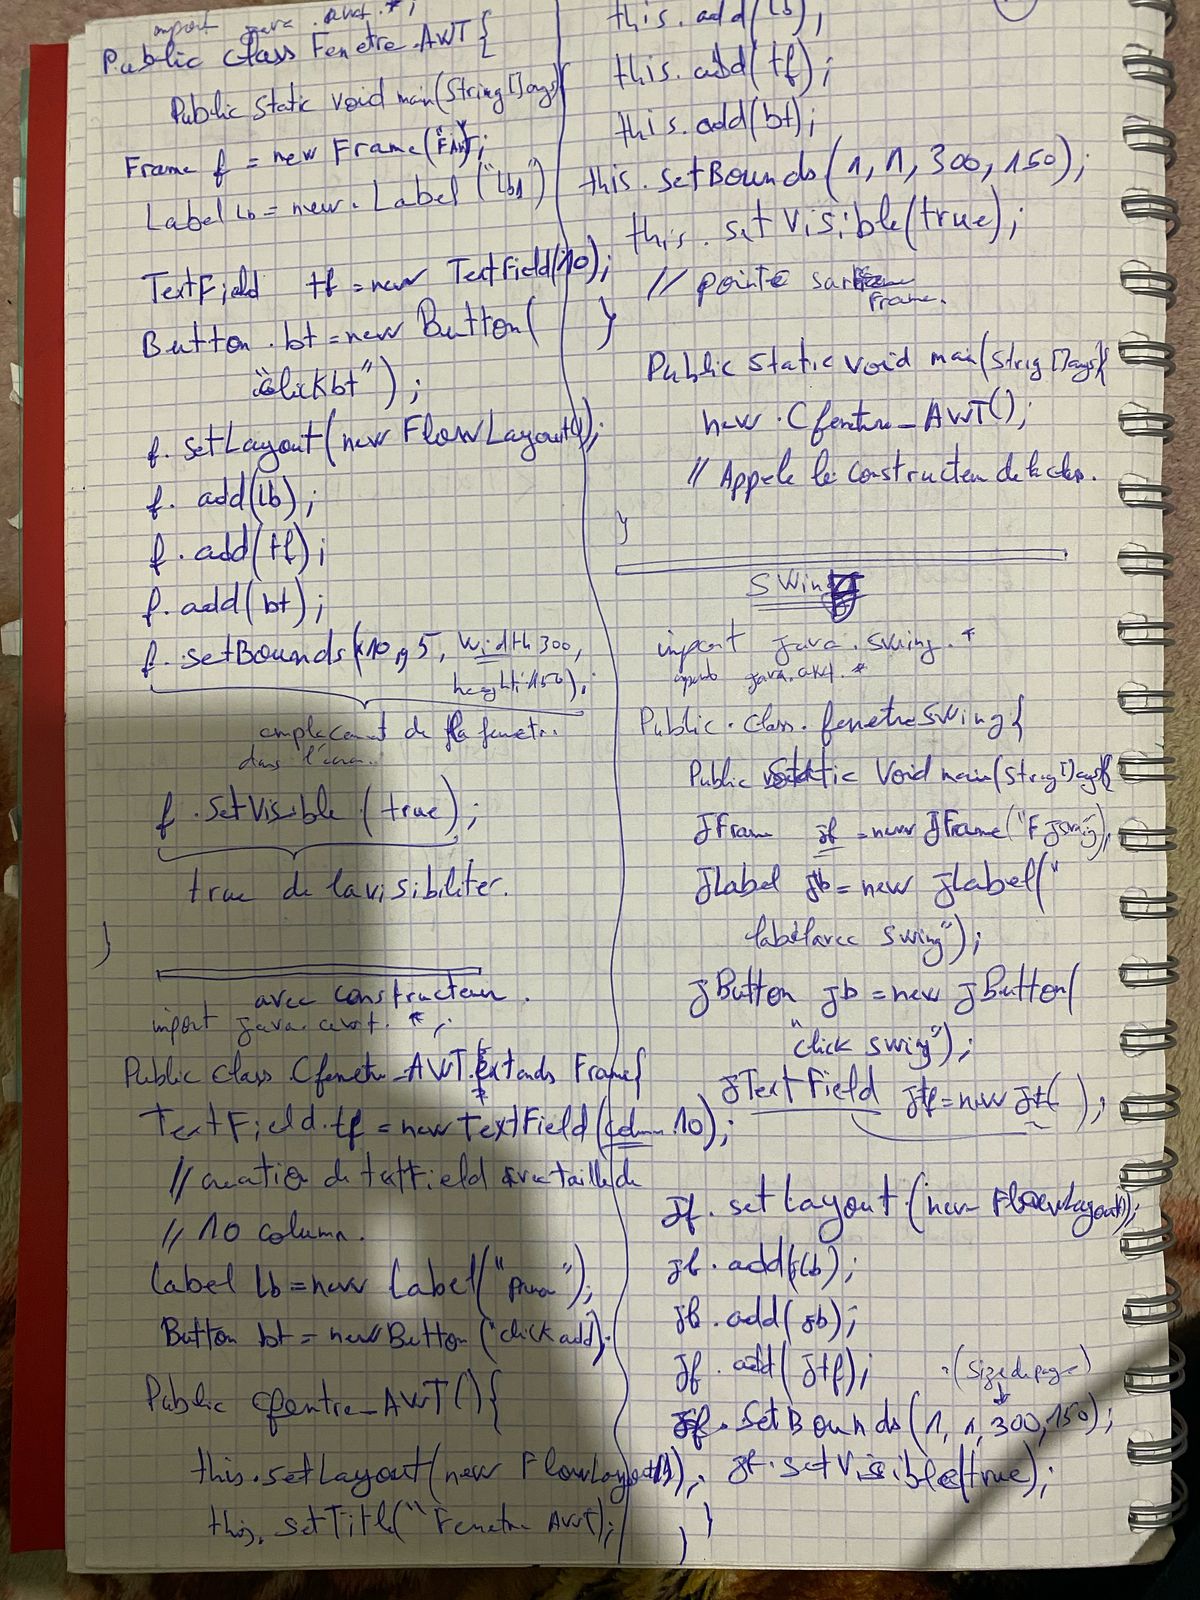 import java.awt.*;
Public class Fenetre-AWT{
Public Static Void main(String[]args{
Frame f = new Frame("FAWT");
Label Lb = new. Label ("Lb1")
TextField tf = new TextField(10);
Button. bt = new Button(
"clickbt");
f. setLayout(new FlowLayout());
f. add(Lb);
f. add(tf);
f. add(bt);
f. setBounds(x10, y5, width 300,
height:150);
emplacement de la fenetr.
dans l'écran.
f. SetVisible (true);
true de la visibiliter.
}
avec constructeur.
import java.awt. *;
Public class Cfenetre_AWT extends Frame{
TextField.tf = new TextField(column 10);
// creation de textField avec taille de
// 10 column.
Label Lb = new Label(" ");
Button bt = new Button ("click add);
Public Cfentre_AWT(){
this.setLayout(new FlowLayout());
this. setTitle("Fenetre AWT);
this.add(Lb);
this.add(tf);
this.add(bt);
this.setBounds(1, 1, 300, 150);
this. setVisible(true);
// pointe sur
Frame.
}
Public Static Void main(Strig[]args{
new.Cfenetre_AWT();
// Appele le constructeur de la class.
}
SWing
import java.swing.*
import java.awt.*
Public.class.fenetreSwing{
Public static Void main(String[]args{
JFrame jf = new JFrame("FJswing);
JLabel jlb = new JLabel("
label avec Swing");
JButton jb = new JButton(
"click swing");
JTextField jtf = new jt( );
jf. setLayout (new FlowLayout());
jf. add(jLb);
jf. add(jb);
jf. add(jtf);
(Size du page)
jf. SetBounds(1, 1, 300, 150);
jf. setVisible(true);
}
}